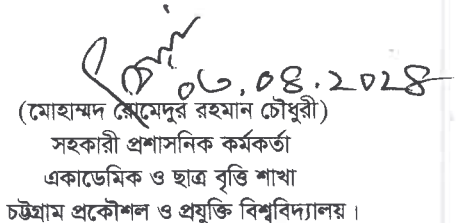 ০৩.০৪.২০২৪
(মোহাম্মদ রোমেদুর রহমান চৌধুরী)
সহকারী প্রশাসনিক কর্মকর্তা
একাডেমিক ও ছাত্র বৃত্তি শাখা
চট্টগ্রাম প্রকৌশল ও প্রযুক্তি বিশ্ববিদ্যালয়।